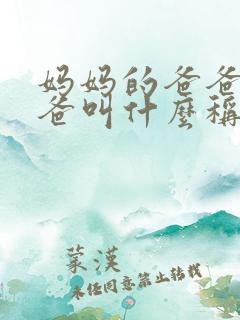 妈妈的爸爸
爸叫什麼稱
蒙漢
未经同意禁止转载